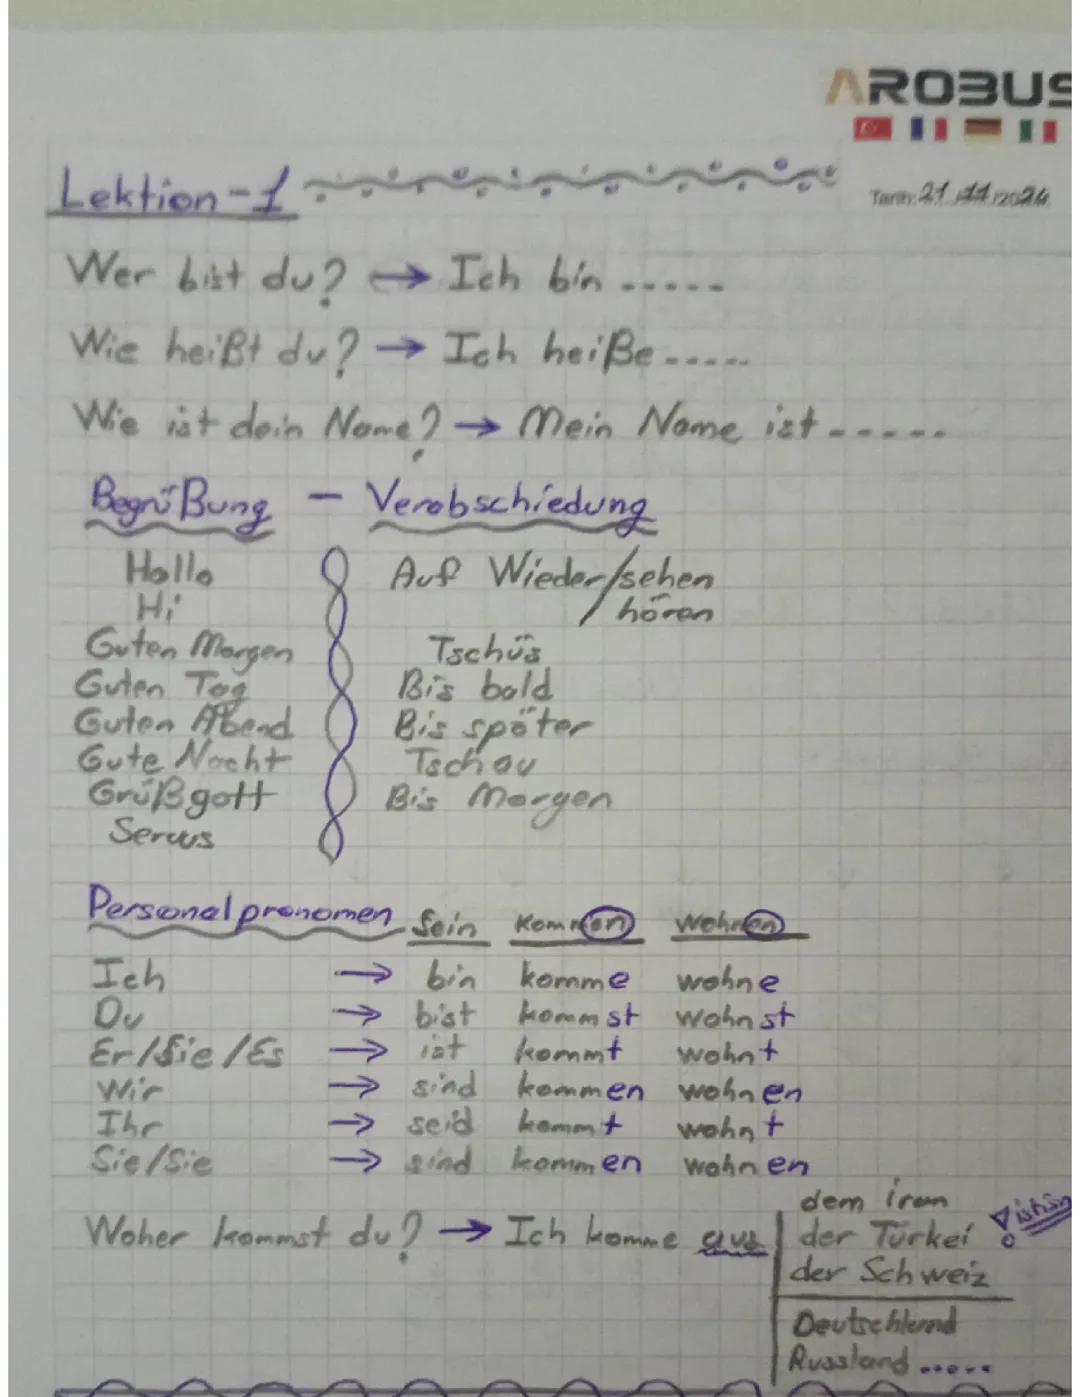 AROBUS
Lektion-1
Tarih: 21.11.2024
Wer bist du? → Ich bin .....
Wie heißt du? → Ich heiße .....
Wie ist dein Name? → Mein Name ist .....
Begrüßung - Verabschiedung
Hallo Auf Wieder/sehen
Hi hören
Guten Morgen Tschüs
Guten Tag Bis bald
Guten Abend Bis später
Gute Nacht Tschau
Grüßgott Bis Morgen
Servus
Personalpronomen Sein Kommen Wohnen
Ich → bin komme wohne
Du → bist kommst wohnst
Er/Sie/Es → ist kommt wohnt
Wir → sind kommen wohnen
Ihr → seid kommt wohnt
Sie/Sie → sind kommen wohnen
Woher kommst du? → Ich komme aus
dem iran
der Türkei
der Schweiz
Deutschland
Russland .....